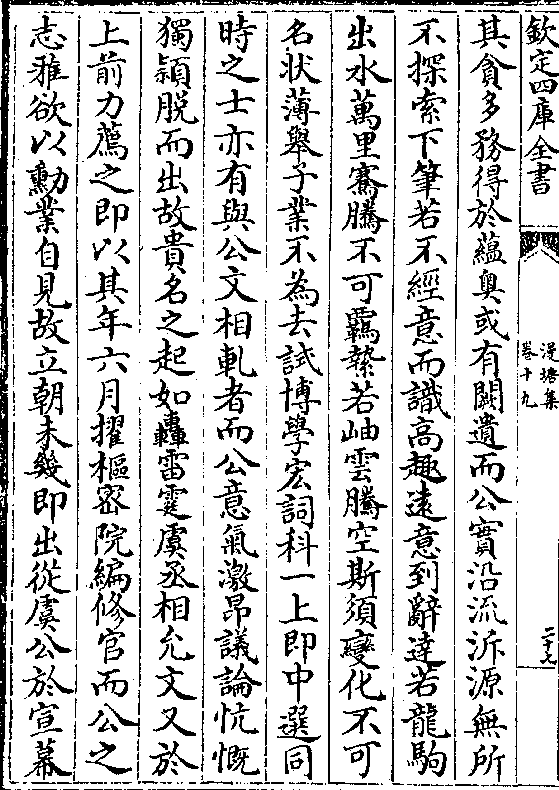 欽定四庫全書
漫塘集
卷十九
二十七
其貪多務得於藴奥或有闕遺而公實沿流泝源無所
不探索下筆若不經意而識高趣逺意到辭達若龍駒
出水萬里騫騰不可羈縶若岫雲騰空斯須變化不可
名状薄舉子業不為去試博學宏詞科一上即中選同
時之士亦有與公文相軋者而公意氣激昂議論忼慨
獨頴脱而出故貴名之起如轟雷霆虞丞相允文又於
上前力薦之即以其年六月擢樞宻院編修官而公之
志雅欲以勳業自見故立朝未幾即出從虞公於宣幕